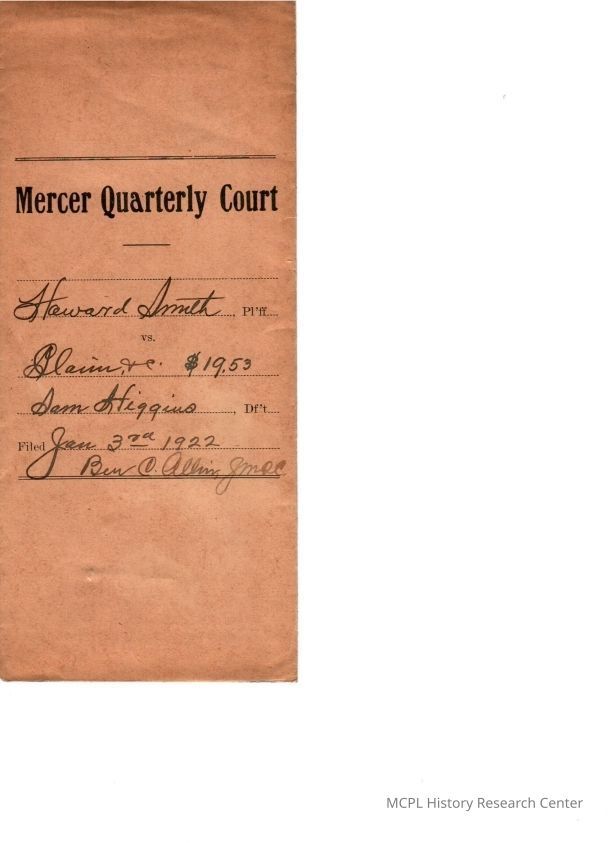 Mercer Quarterly Court
Howard Smith, Pl'ff.
vs.
Claim, &c. $19.53
Sam Higgins, Df't.
Filed Jan 3rd 1922
Ben C. Allin, JMQC
MCPL History Research Center